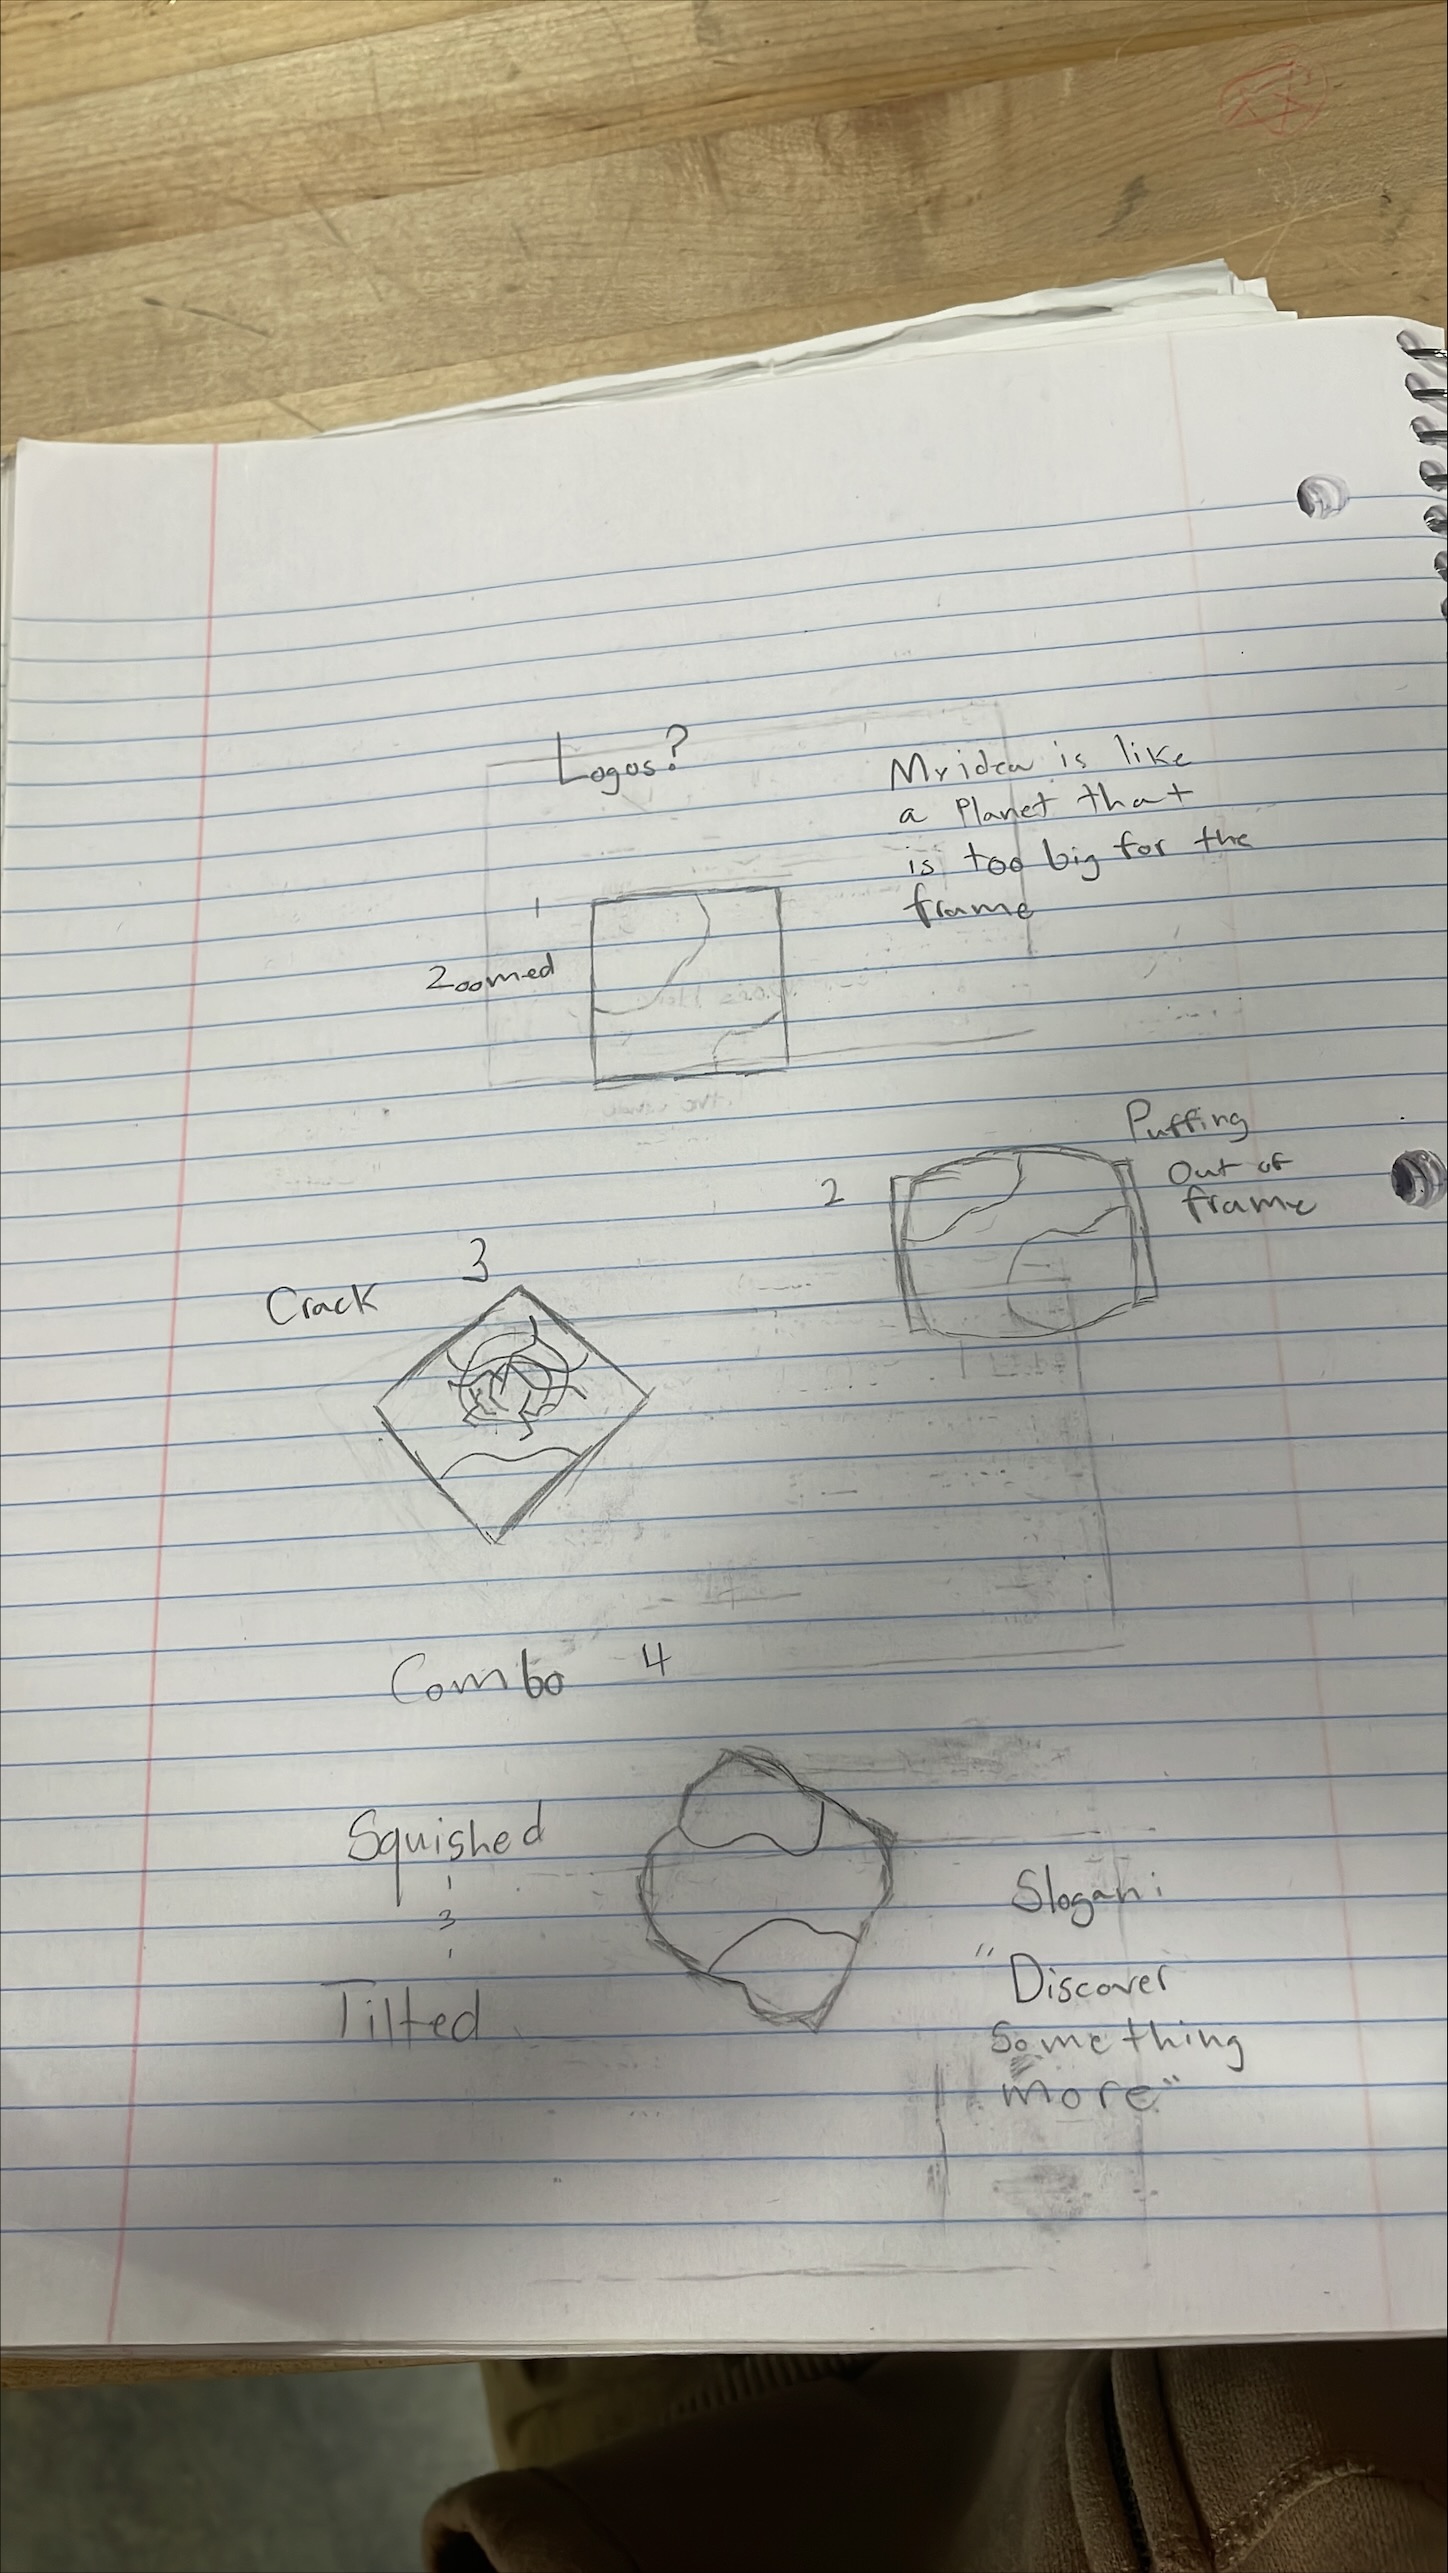 Logos?
My idea is like
a Planet that
is too big for the
frame
1
Zoomed
Puffing
Out of
frame
2
3
Crack
Combo 4
Squished
3
Tilted
Slogan:
"Discover
Something
more"